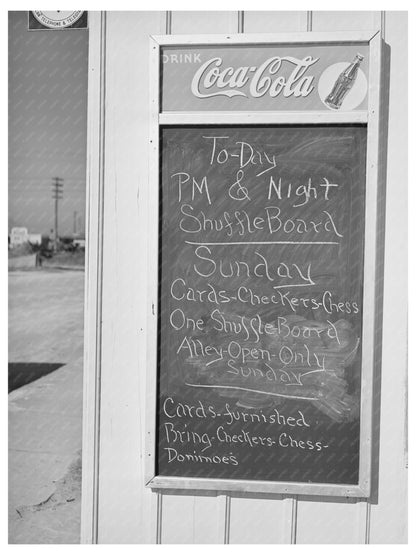 TELEPHONE
DRINK
Coca-Cola
To-Day
PM & Night
ShuffleBoard
Sunday
Cards-Checkers-Chess
One ShuffleBoard
Alley-Open-Only
Sunday
Cards-furnished
Bring-Checkers-Chess-
Dominoes